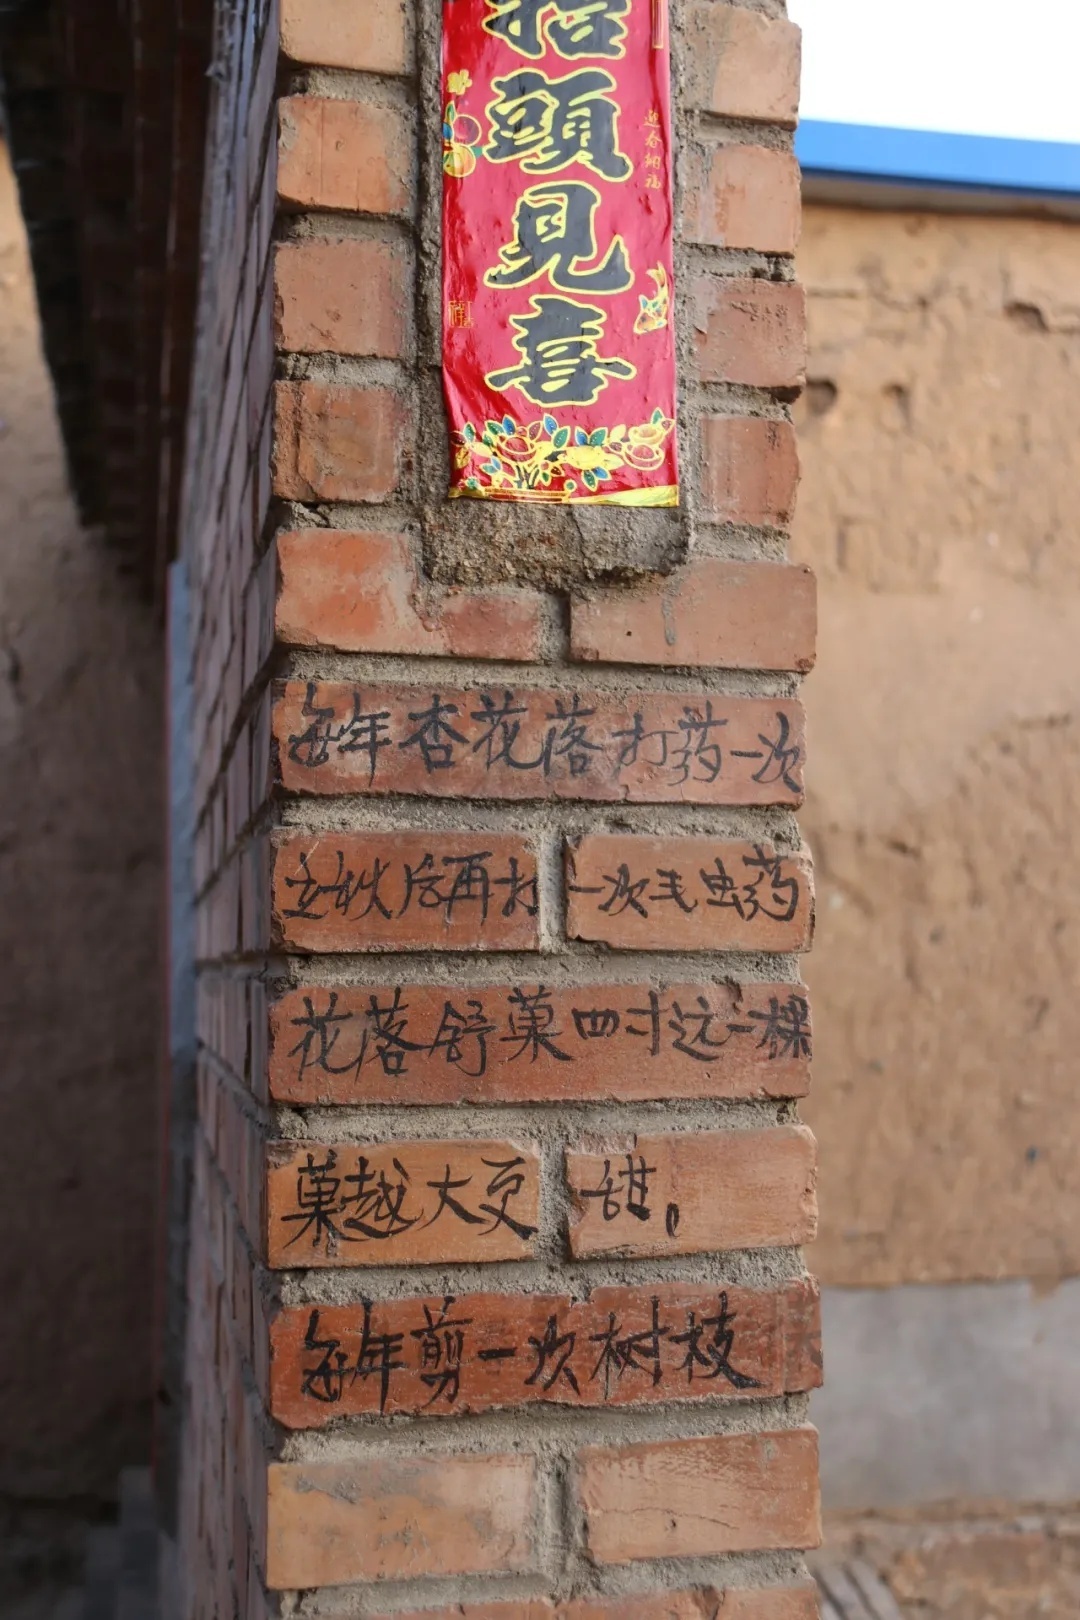 抬頭見喜
迎春納福
每年杏花落打药一次
立秋后再打一次毛虫药
花落舒菓四寸远一棵
菓越大更甜。
每年剪一次树枝